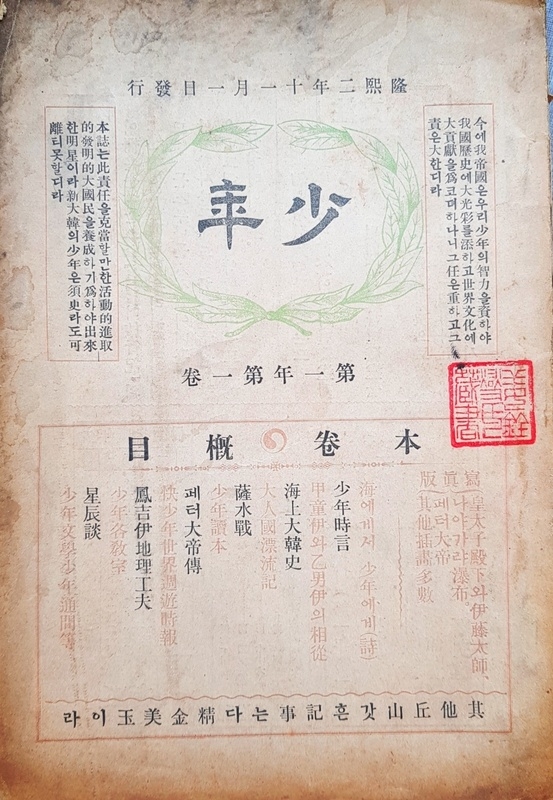 隆熙二年十一月一日發行
今에我帝國은우리少年의智力을資하야
我國歷史에大光彩를添하고世界文化에
大貢獻을爲코뎌하나니그任은重하고그
責은大한디라
少年
本誌는此責任을克當할만한活動的進取
的發明的大國民을養成하기爲하야出來
한明星이라新大韓의少年은須臾라도可
離티못할디라
第一年第一卷
本卷槪目
寫眞版
皇太子殿下와伊藤太師、
나야가라瀑布。
페터大帝
其他揷畵多數
海에게서 少年에게(詩)
少年時言
甲童伊와乙男伊의相從
海上大韓史
大人國漂流記
薩水戰
少年讀本
페터大帝傳
快少年世界周遊時報
鳳吉伊地理工夫
少年各敎室
星辰談
少年文學少年通閒等
其他丘山갓흔記事는다精金美玉이라